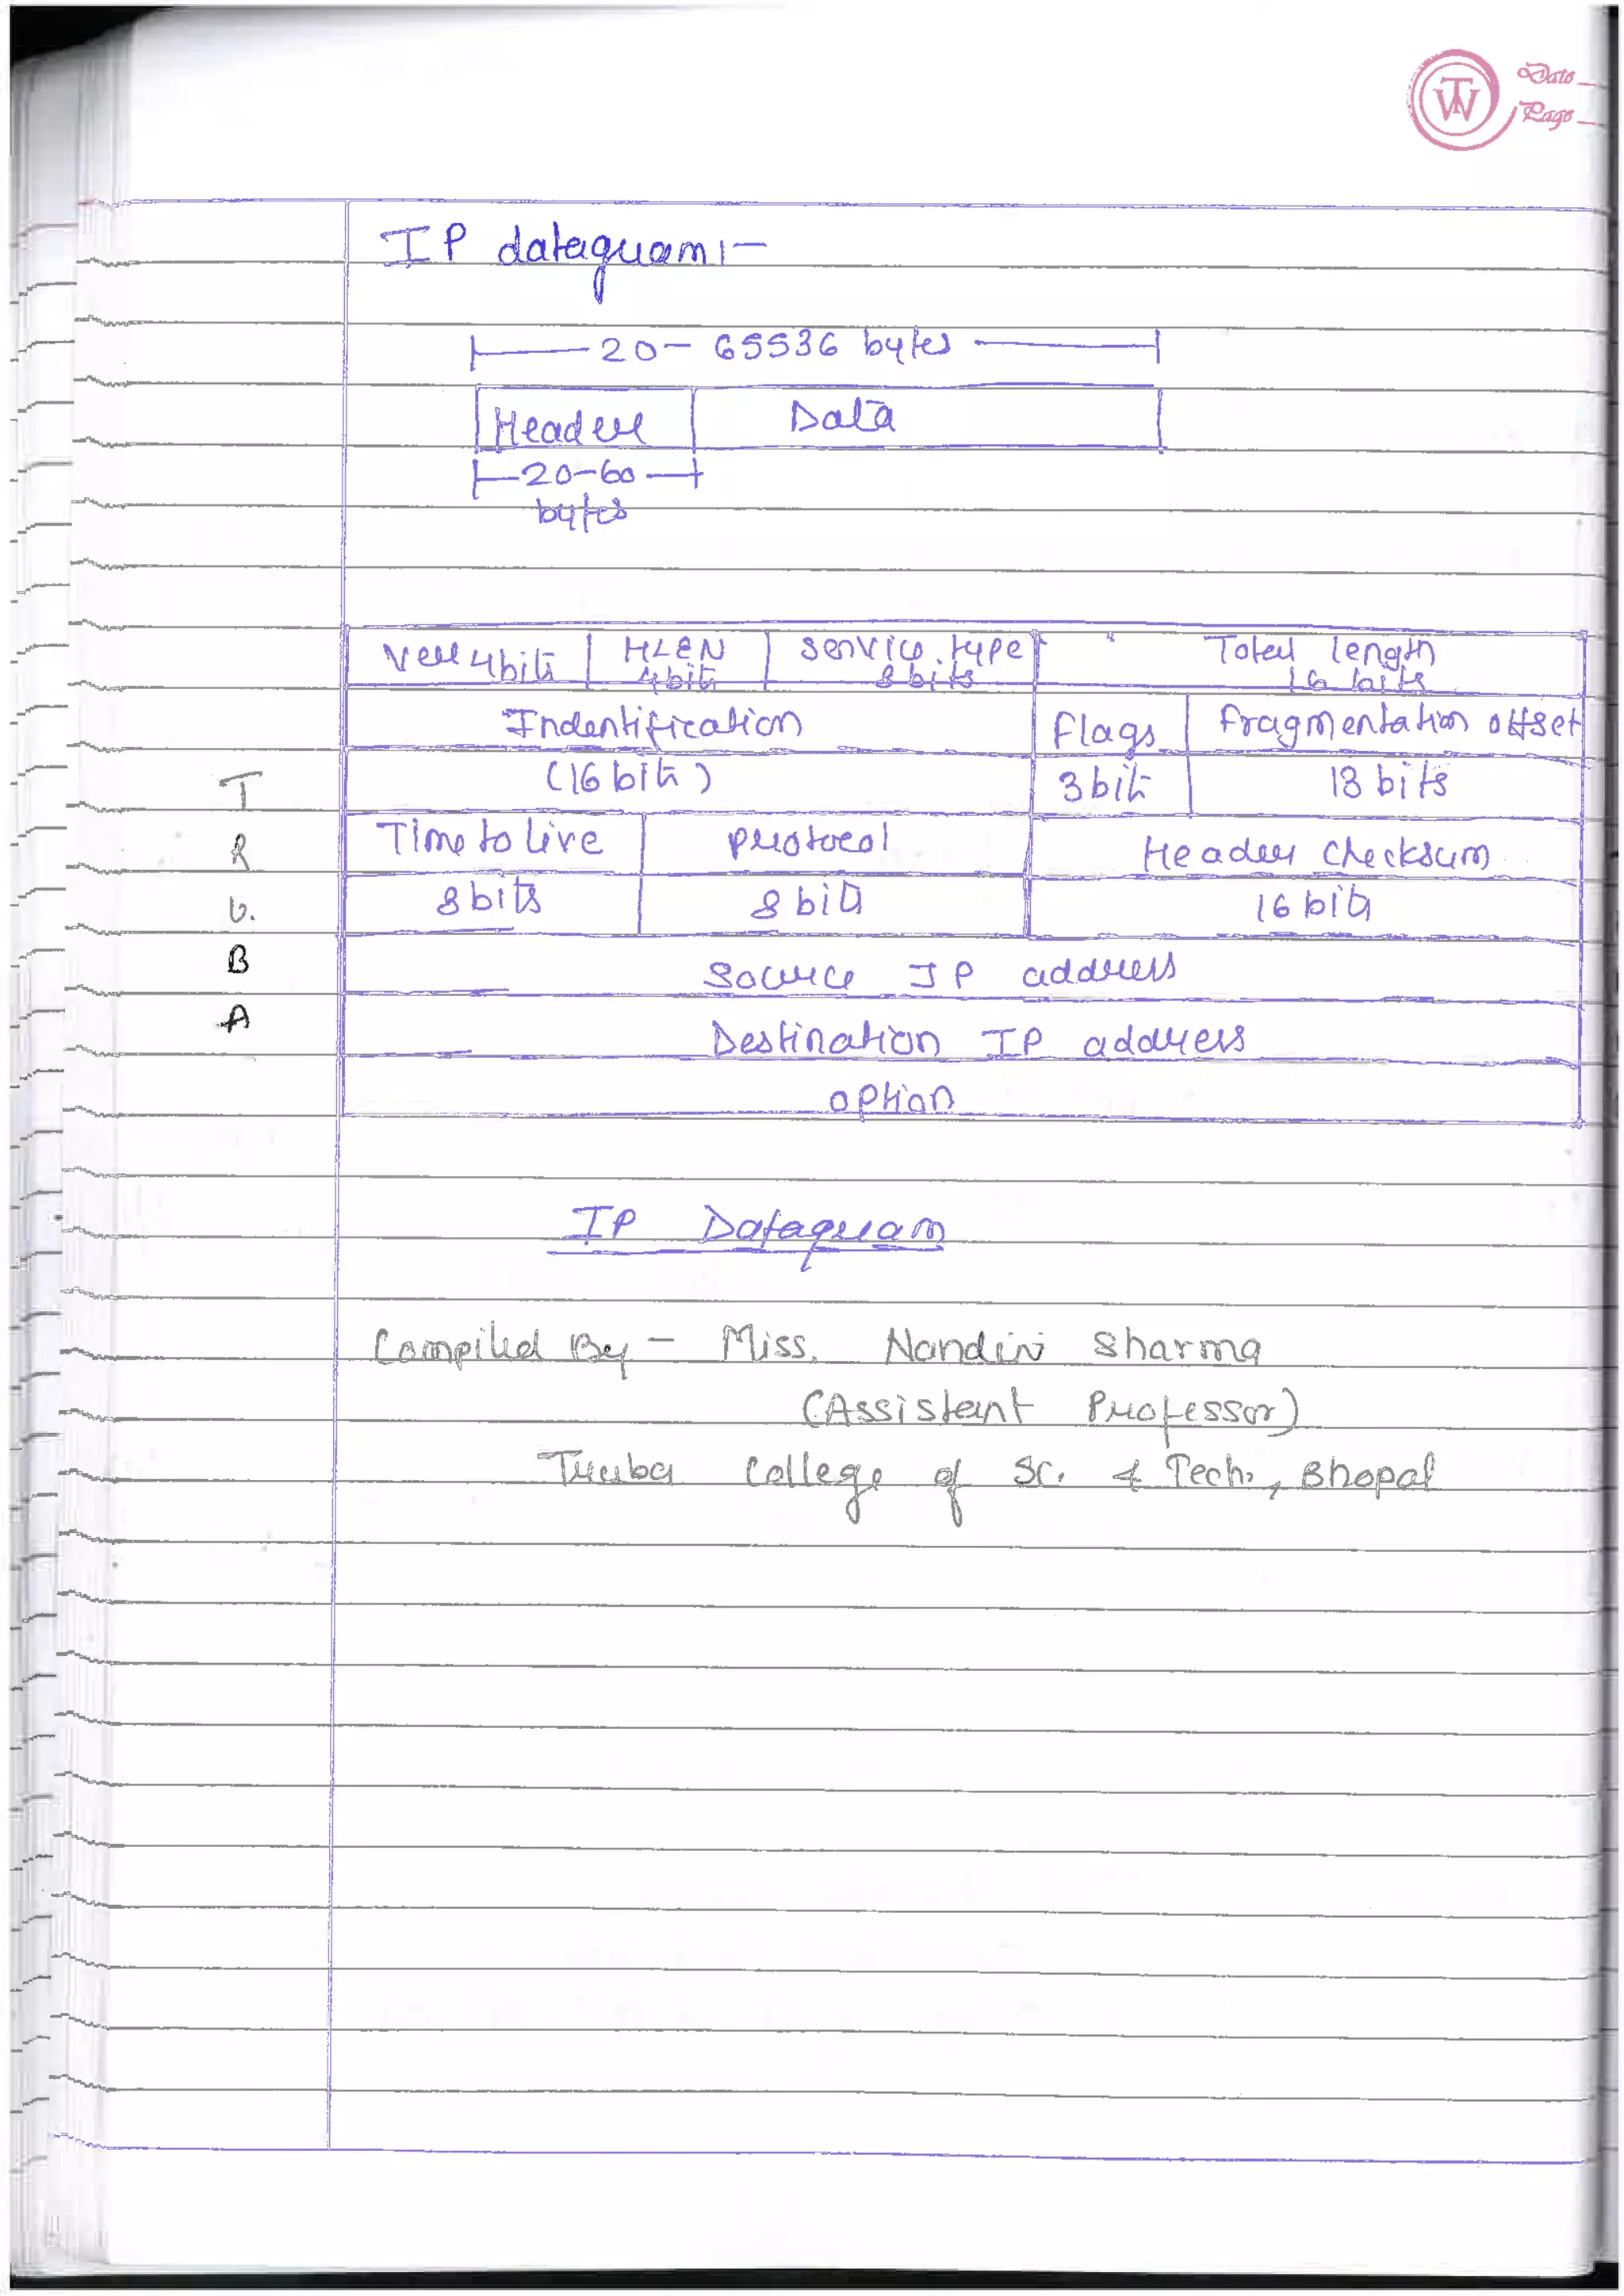 Date
Page
IP datagram :-
20 - 65536 bytes
Header Data
20-60
bytes
Ver 4 bits HLEN 4 bits Service type 8 bits Total length 16 bits
Indentification Flags Fragmentation offset
(16 bits) 3 bits 13 bits
Time to live protocol Header Checksum
8 bits 8 bits 16 bits
Source IP address
Destination IP address
option
T
R
U.
B
A
IP Datagram
Compiled By - Miss. Nandini Sharma
(Assistant Professor)
Truba College of Sc. & Tech., Bhopal